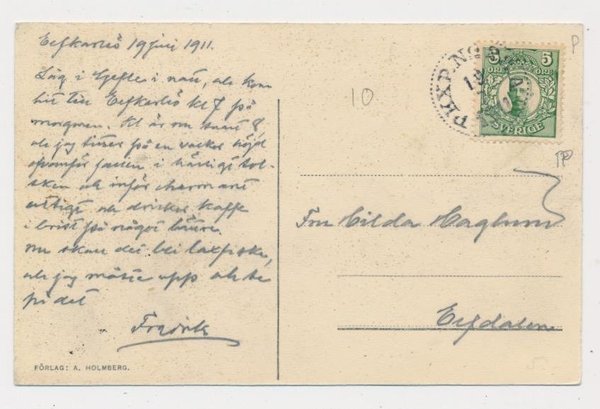 Elfkarleö 19 juni 1911.
Låg i Gefle i natt, och kom
hit till Elfkarleö kl 7 på
morgonen. Kl är nu snart 8,
och jag sitter på en vacker höjd
ofvanför forsen i härligt sol-
sken och
och dricker kaffe
i brist på något bättre.
nu skall det bli laxfiske,
och jag måste upp och se
på det
Fredrik
FÖRLAG: A. HOLMBERG.
10
P
PKXP. No
19
5
5
SVERIGE
Fru Hilda Haglund
Elfdalen